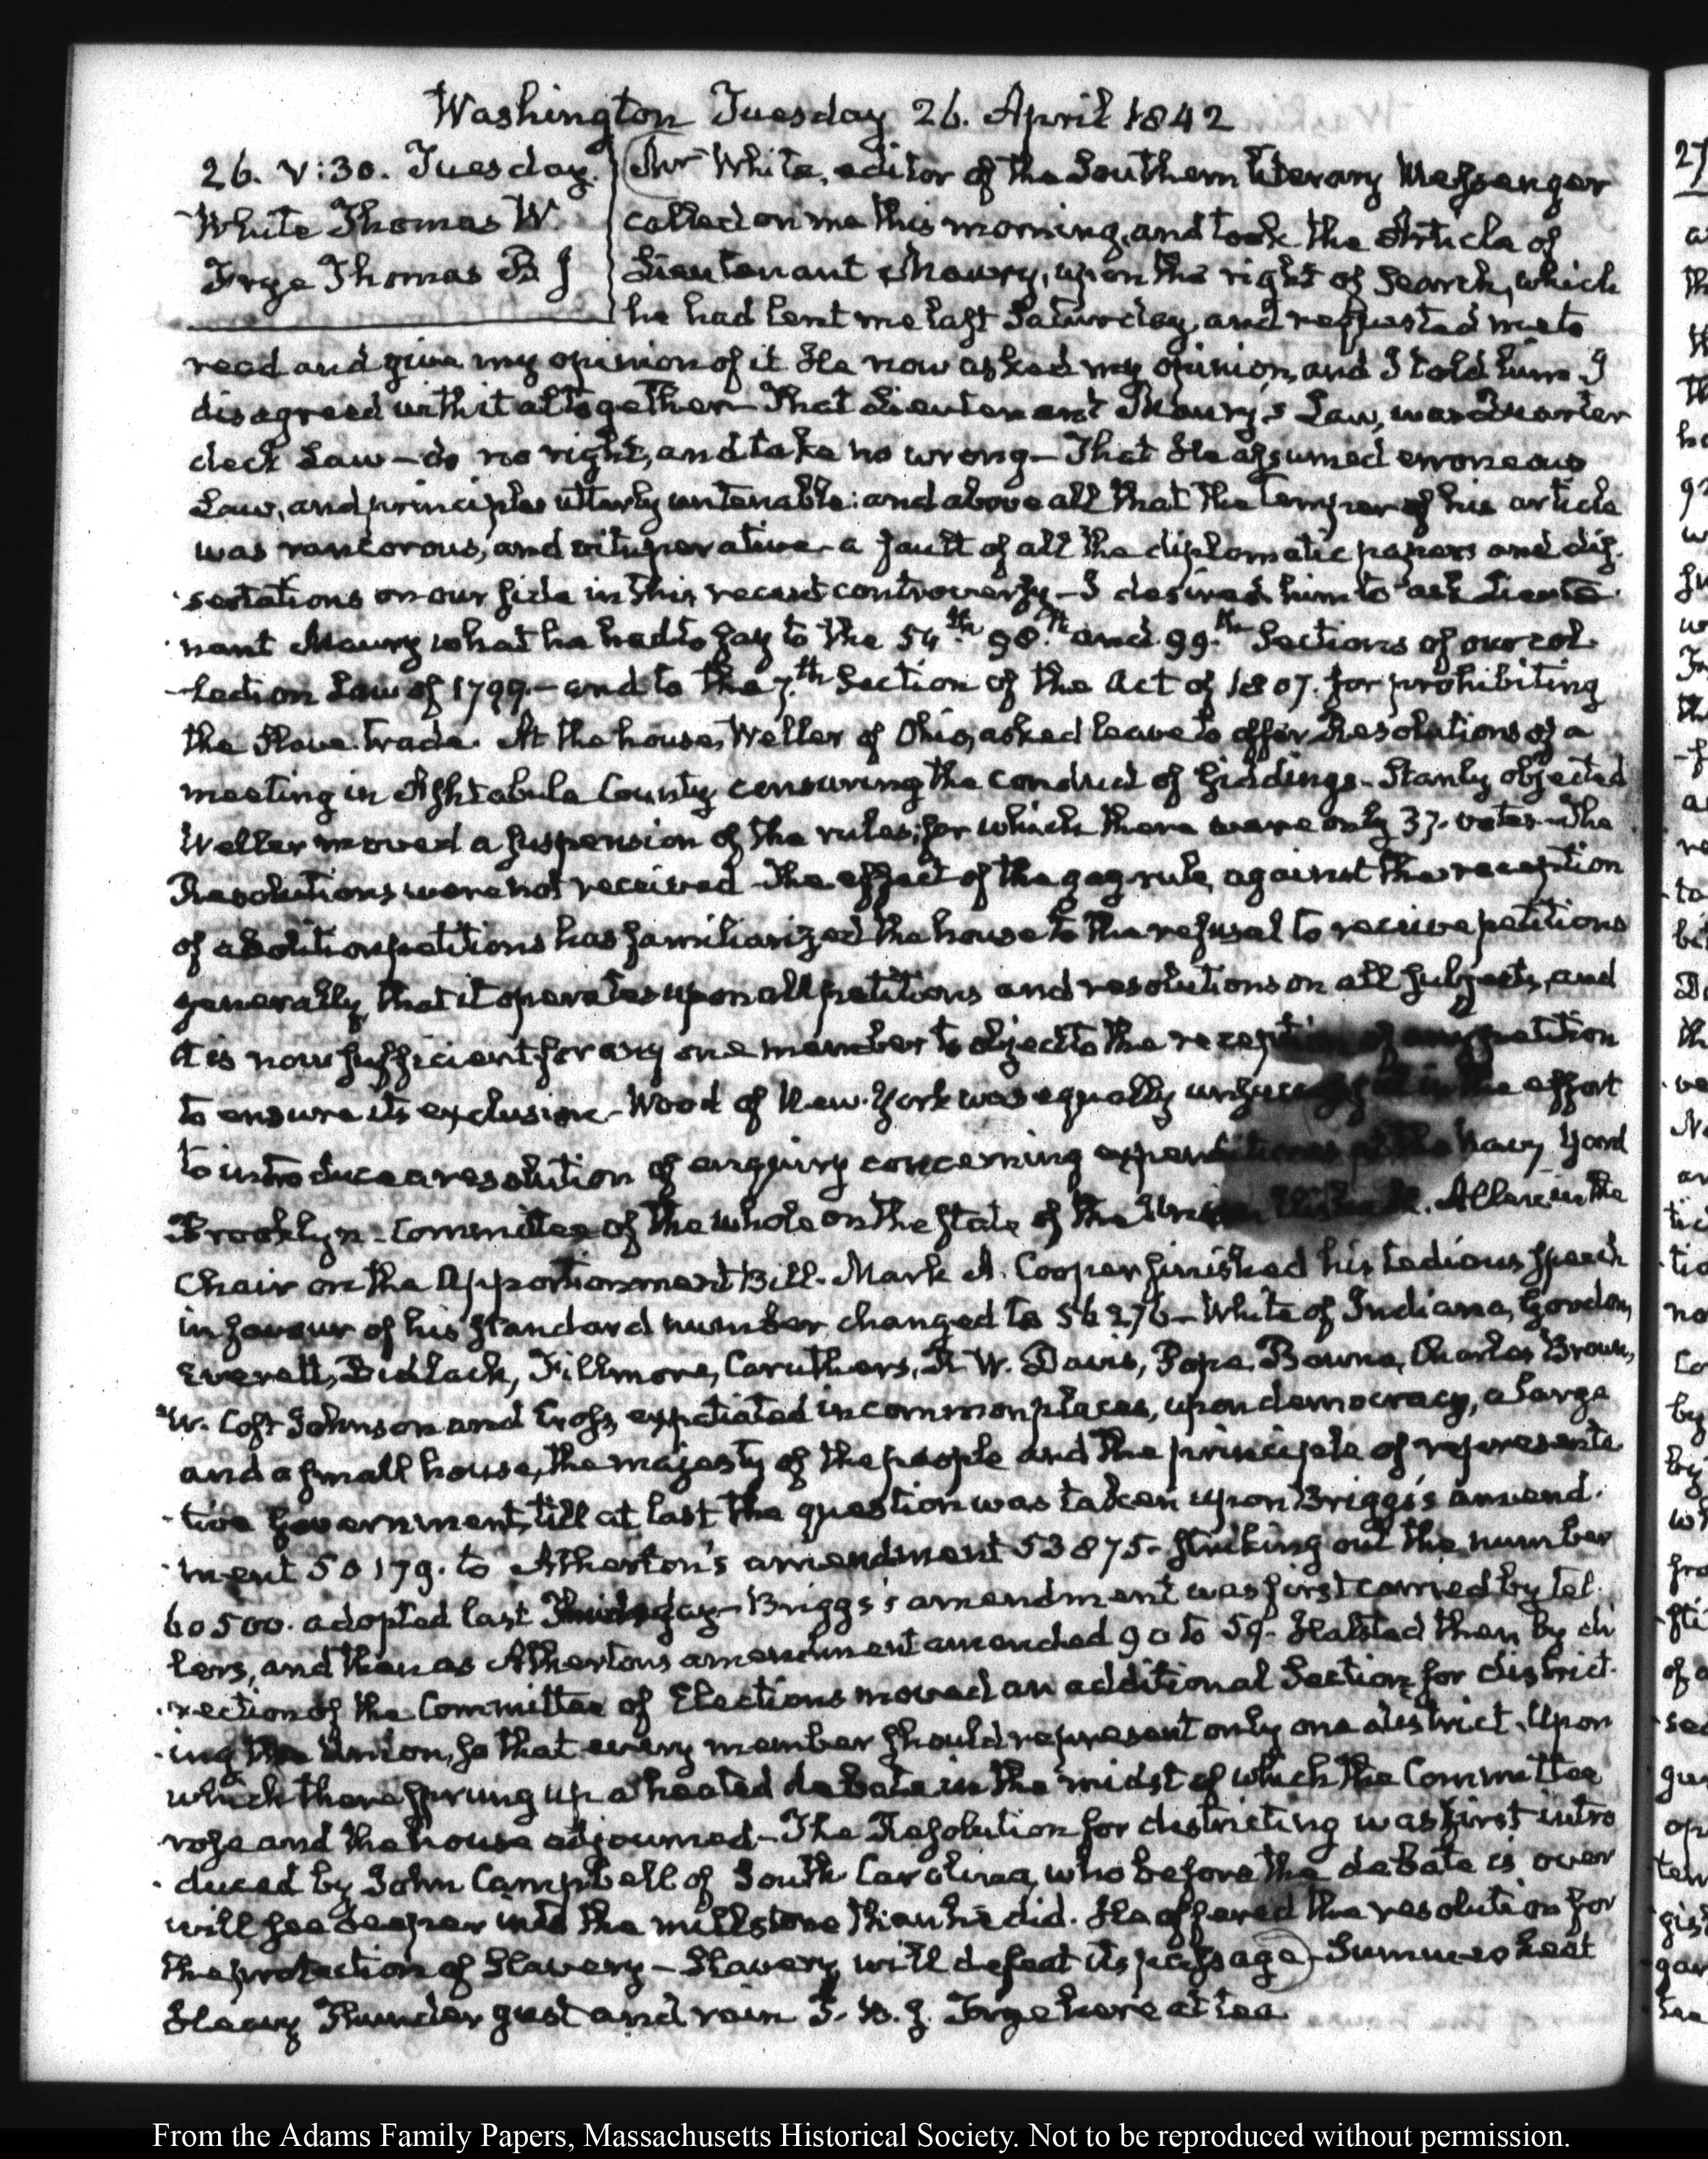 Washington Tuesday 26. April 1842
26. V:30. Tuesday.
White Thomas W.
Frye Thomas B J
Mr White, editor of the Southern literary Messenger
called on me this morning, and took the Article of
Lieutenant Maury, upon the right of Search, which
he had lent me last Saturday, and requested me to
read and give my opinion of it He now asked my opinion, and I told him I
disagreed with it altogether— That Lieutenant Maury's Law, was Quarter
deck Law—do no right, and take no wrong— That he assumed erroneous
Law, and principles utterly untenable: and above all that the temper of his article
was rancorous, and vituperative—a fault of all the diplomatic papers and dis-
sertations on our side in this recent controversy— I desired him to ask Lieute-
nant Maury what he had to say to the 54th 98th and 99th Sections of our col-
-lection Law of 1799.— and to the 7th Section of the Act of 1807. for prohibiting
the Slave trade. At the house, Weller of Ohio, asked leave to offer Resolutions of a
meeting in Ashtabula County censuring the conduct of Giddings— Stanly objected
Weller moved a suspension of the rules; for which there were only 37. votes— The
Resolutions were not received— The effect of the gag rule, against the reception
of abolition petitions has familiarized the house to the refusal to receive petitions
generally, that it operates upon all petitions and resolutions on all subjects, and
it is now sufficient for any one member to object to the reception of any petition
to ensure its exclusion— Wood of New-York was equally unsuccessful in the effort
to introduce a resolution of enquiry concerning expenditures at the Navy Yard
Brooklyn— Committee of the whole on the state of the Union. Allen in the
Chair on the Apportionment Bill. Mark A. Cooper finished his tedious speech
in favour of his standard number, changed to 56276— White of Indiana, Gordon,
Everett, Bidlack, Fillmore, Caruthers, R. W. Davis, Pope, Bowne, Charles Brown,
W. Cost Johnson and Cross, expatiated in common places, upon democracy, a large
and a small house, the majesty of the people and the principle of representa-
-tive Government, till at last the question was taken upon Briggs's amend-
-ment 50179. to Atherton's amendment 53875— striking out the number
60500. adopted last Thursday— Briggs's amendment was first carried by tel-
lers, and then as Atherton's amendment amended 90 to 59. Halsted then by di-
-rection of the Committee of Elections moved an additional Section, for district-
-ing the Union, so that every member should represent only one district. Upon
which there sprung up a heated debate in the midst of which the Committee
rose and the house adjourned— The Resolution for districting was first intro
-duced by John Campbell of South Carolina, who before the debate is over
will see deeper into the millstone than he did. He offered the resolution for
the protection of Slavery— Slavery will defeat its passage— Summer heat
Heavy Thunder gust and rain T. B. J. Frye here at tea
From the Adams Family Papers, Massachusetts Historical Society. Not to be reproduced without permission.